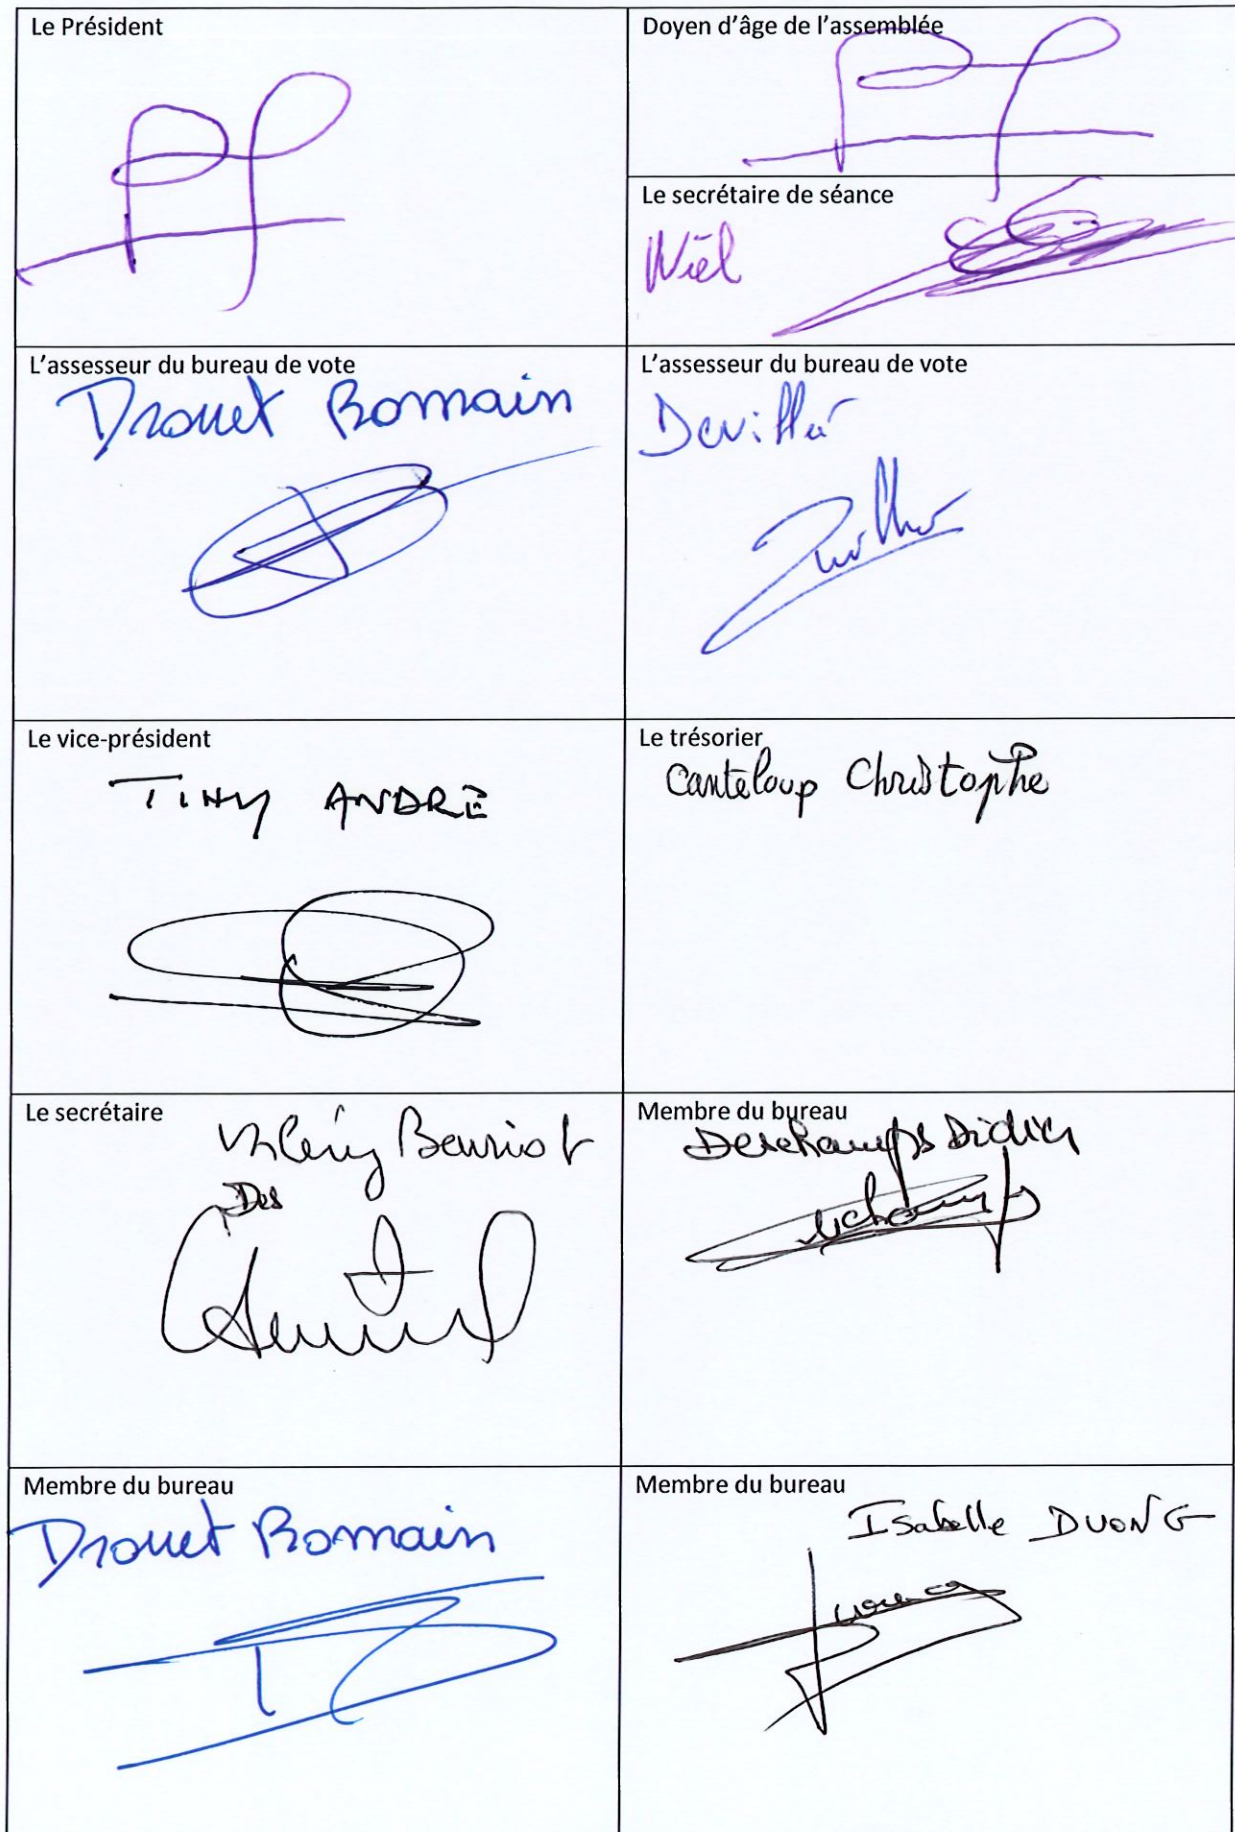 Le Président
Doyen d'âge de l'assemblée
Le secrétaire de séance
L'assesseur du bureau de vote
Drouet Romain
L'assesseur du bureau de vote
Le vice-président
ANDRE
Le trésorier
Canteloup Christophe
Le secrétaire
Membre du bureau
Deschamps Didier
Membre du bureau
Drouet Romain
Membre du bureau
Isabelle DUONG